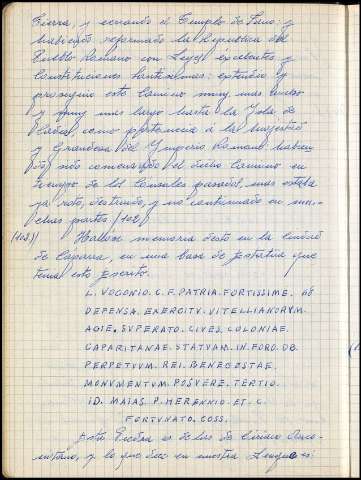 Tierra, y cerrando el Templo de Jano; y
habiendo reformado la Republica del
Pueblo Romano con Leyes excelentes y
Constituciones santisimas: extendio y
prosiguio este Camino muy mas ancho
y muy mas largo hasta la Isla de
Cadiz, como pertenecia a la magestad
y Grandeza del Ymperio Romano haben
do sido comenzado el dicho Camino en
tiempo de los Consules pasados, mas estaba
ya roto, destruido, y no continuado en mu-
chas partes (102)
(103)/ Hallose memoria desto en la Ciudad
de Caparra, en una basa de estatua que
tenia esto escrito.
L. VOCONIO. C. F. PATRIA. FORTISSIME. AB
DEPENSA. EXERCITV. VITELLIANORVM.
ACIE. SVPERATO. CIVES. COLONIAE.
CAPARITANAE. STATVAM. IN. FORO. OB.
PERPETVVM. REI. BENEGESTAE.
MONVMENTVM. POSVERE. TERTIO.
ID. MAIAS. P. HERENNIO. ET. C.
FORTVNATO. COSS.
esta Piedra es de las de Ciriaco Anco-
nitano, y lo que dice en nuestra Lengua es: